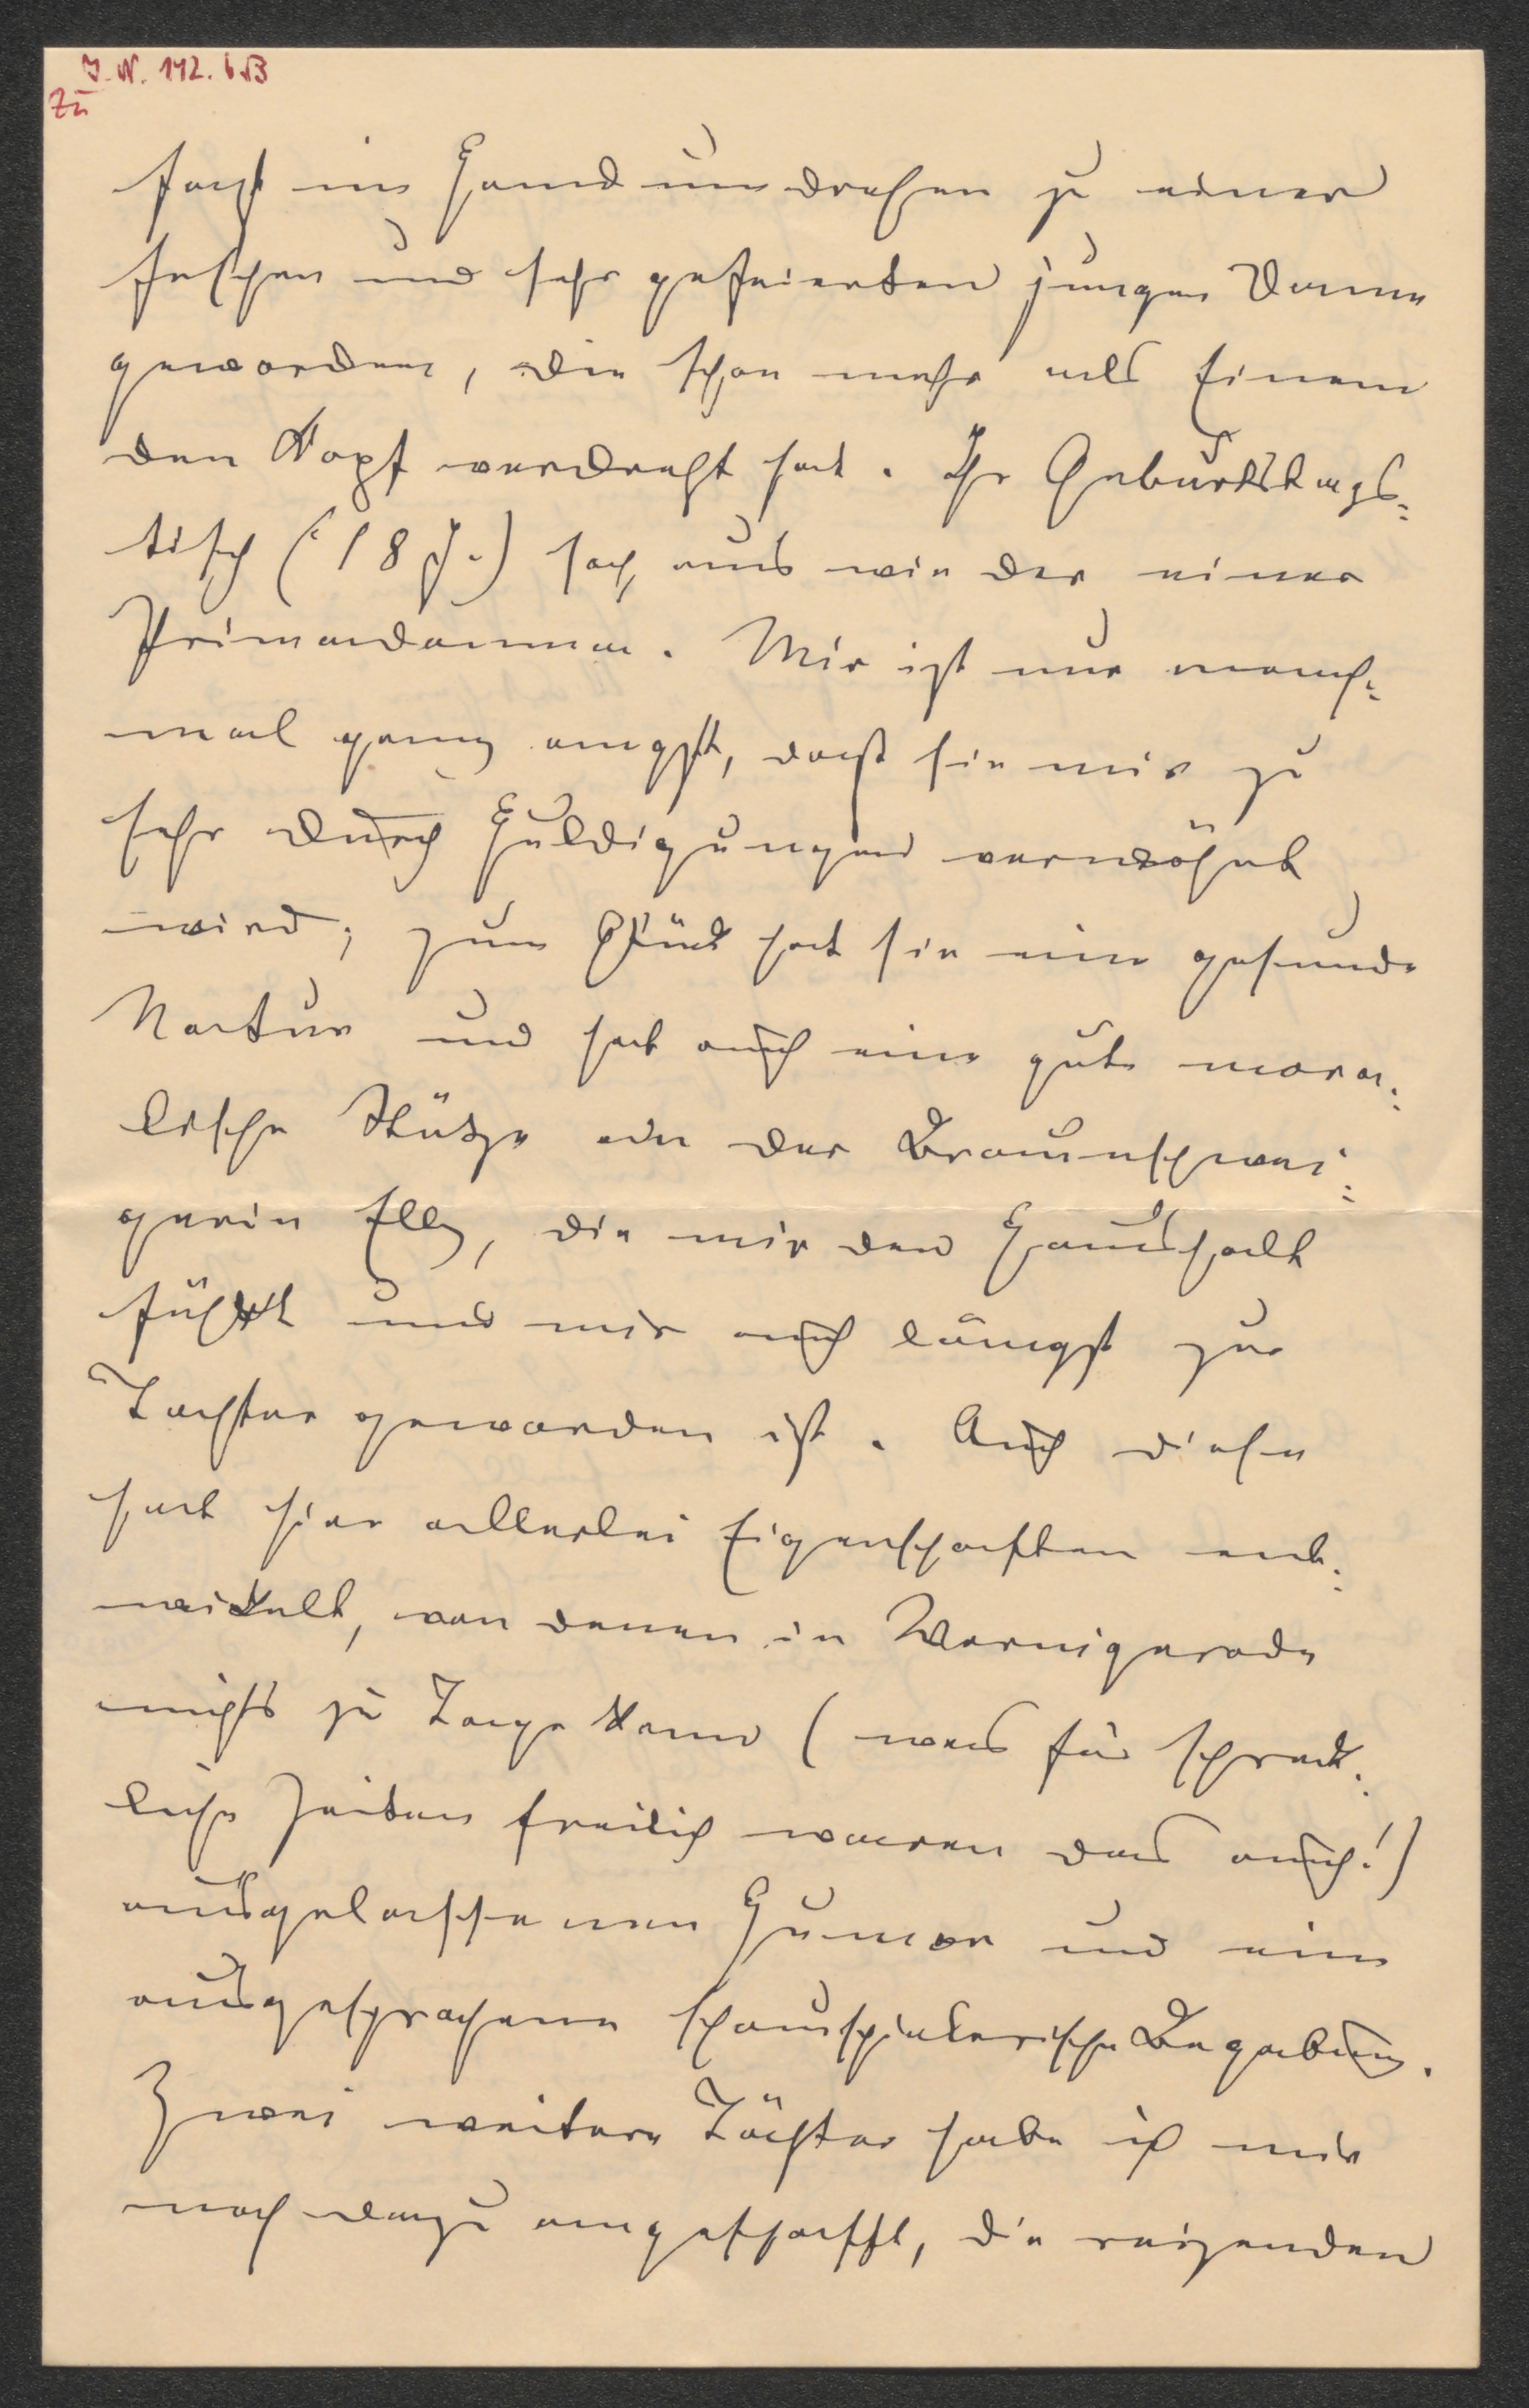 J. N. 142.653
Zu
fast im Handumdrehen zu einer
feschen und sehr gefeierten jungen Dame
geworden, die schon mehr als Einem
den Kopf verdreht hat. Ihr Geburtstags-
tisch (18 J.) sah aus wie der einer
Primadonna. Mir ist nur manch-
mal ganz angst, dass sie mir zu
sehr durch Huldigungen verwöhnt
wird; zum Glück hat sie eine gesunde
Natur und hat auch eine gute mora-
lische Stütze an der Braunschwei-
gerin Elly, die mir den Haushalt
führt und mir auch längst zur
Tochter geworden ist. Auch diese
hat hier allerlei Eigenschaften ent-
wickelt, von denen in Wernigerode
nichts zu Tage kam (was für schreck-
liche Zeiten freilich waren das auch!)
ausgelassenen Humor und eine
ausgesprochene schauspielerische Begabung.
Zwei weitere Töchter habe ich mir
noch dazu angeschafft, die reizenden